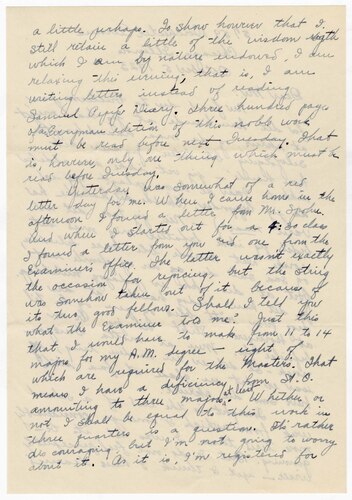 a little perhaps. To show however that I
still retain a little of the wisdom with
which I am by nature endowed, I am
relaxing this evening, that is, I am
writing letters instead of reading
Samuel Pepys' Diary. Three hundred pages
of the Everyman edition of this noble work
must be read before next Tuesday. That
is, however, only one thing which must be
read before Tuesday.
Yesterday was somewhat of a red
letter day for me. When I came home in the
afternoon I found a letter from Mr. Spohn.
And when I started out for a 4:30 class
I found a letter from you and one from the
Examiners office. The letter wasn't exactly
the occasion for rejoicing, but the sting
was somehow taken out of it because of
its two good fellows. Shall I tell you
what the Examiner told me? Just this
that I would have to make from 11 to 14
majors for my A.M. degree – eight of
which are required for the Masters. That
means I have a deficiency from St. O.
amounting to three majors at least. Whether or
not I shall be equal to this work in
three quarters is a question. It's rather
discouraging but I'm not going to worry
about it. As it is, I'm registered for